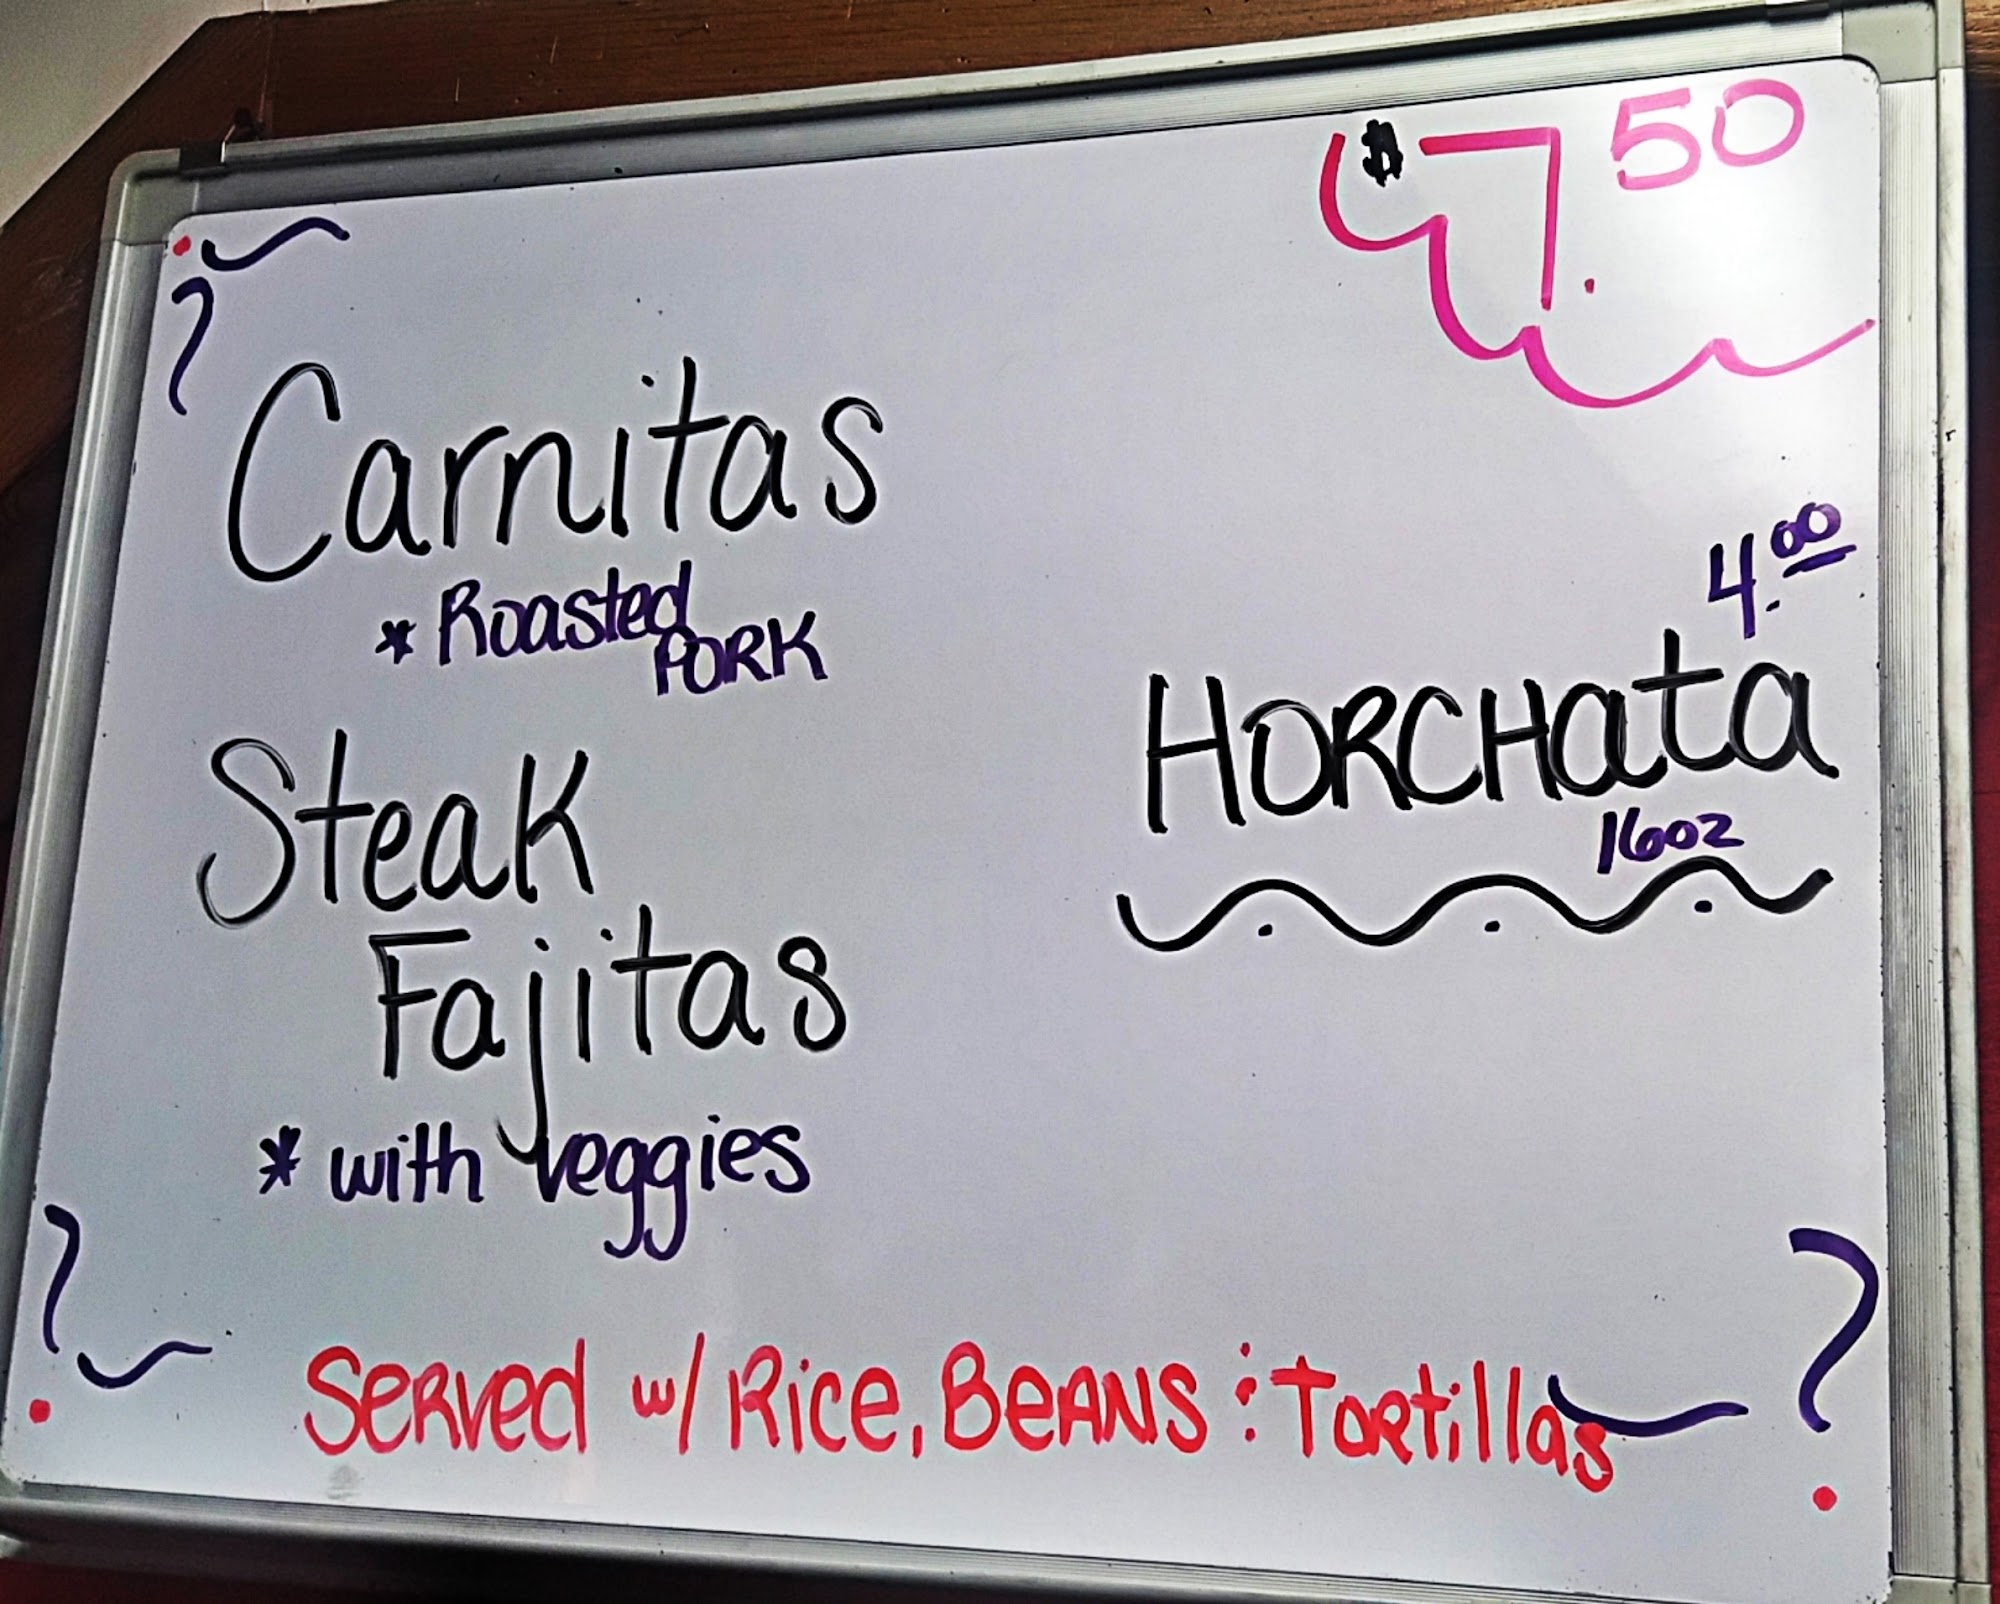 $7.50
Carnitas
* Roasted
PORK
4.00
HORCHata
16oz
Steak
Fajitas
* with veggies
Served w/ Rice, Beans : Tortillas